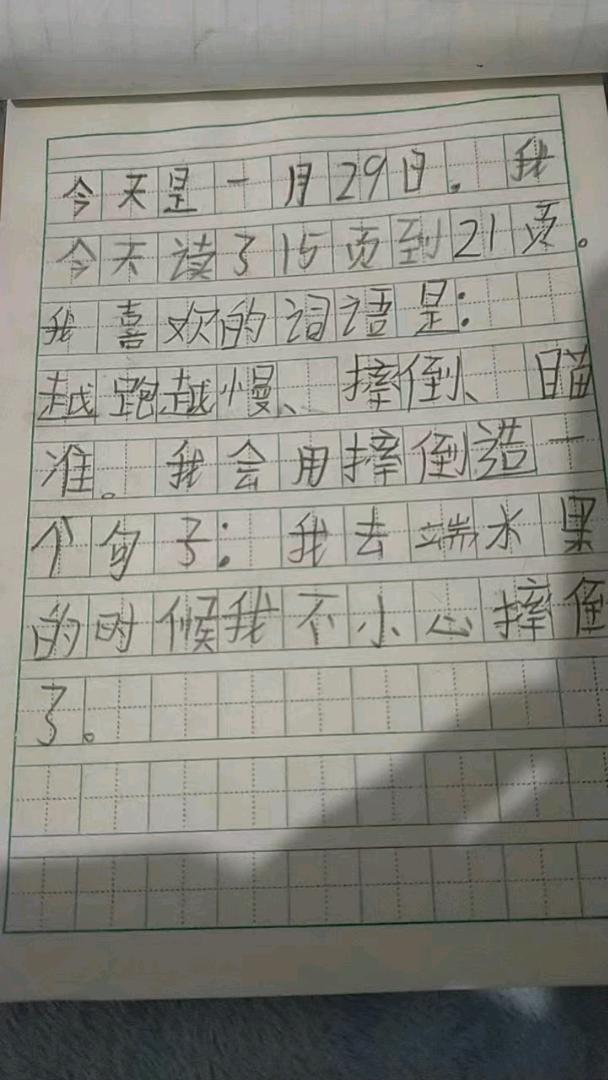 今天是一月29日。我
今天读了15页到21页。
我喜欢的词语是：
越跑越慢、摔倒、瞄
准。我会用摔倒造一
个句子：我去端水果
的时候我不小心摔倒
了。